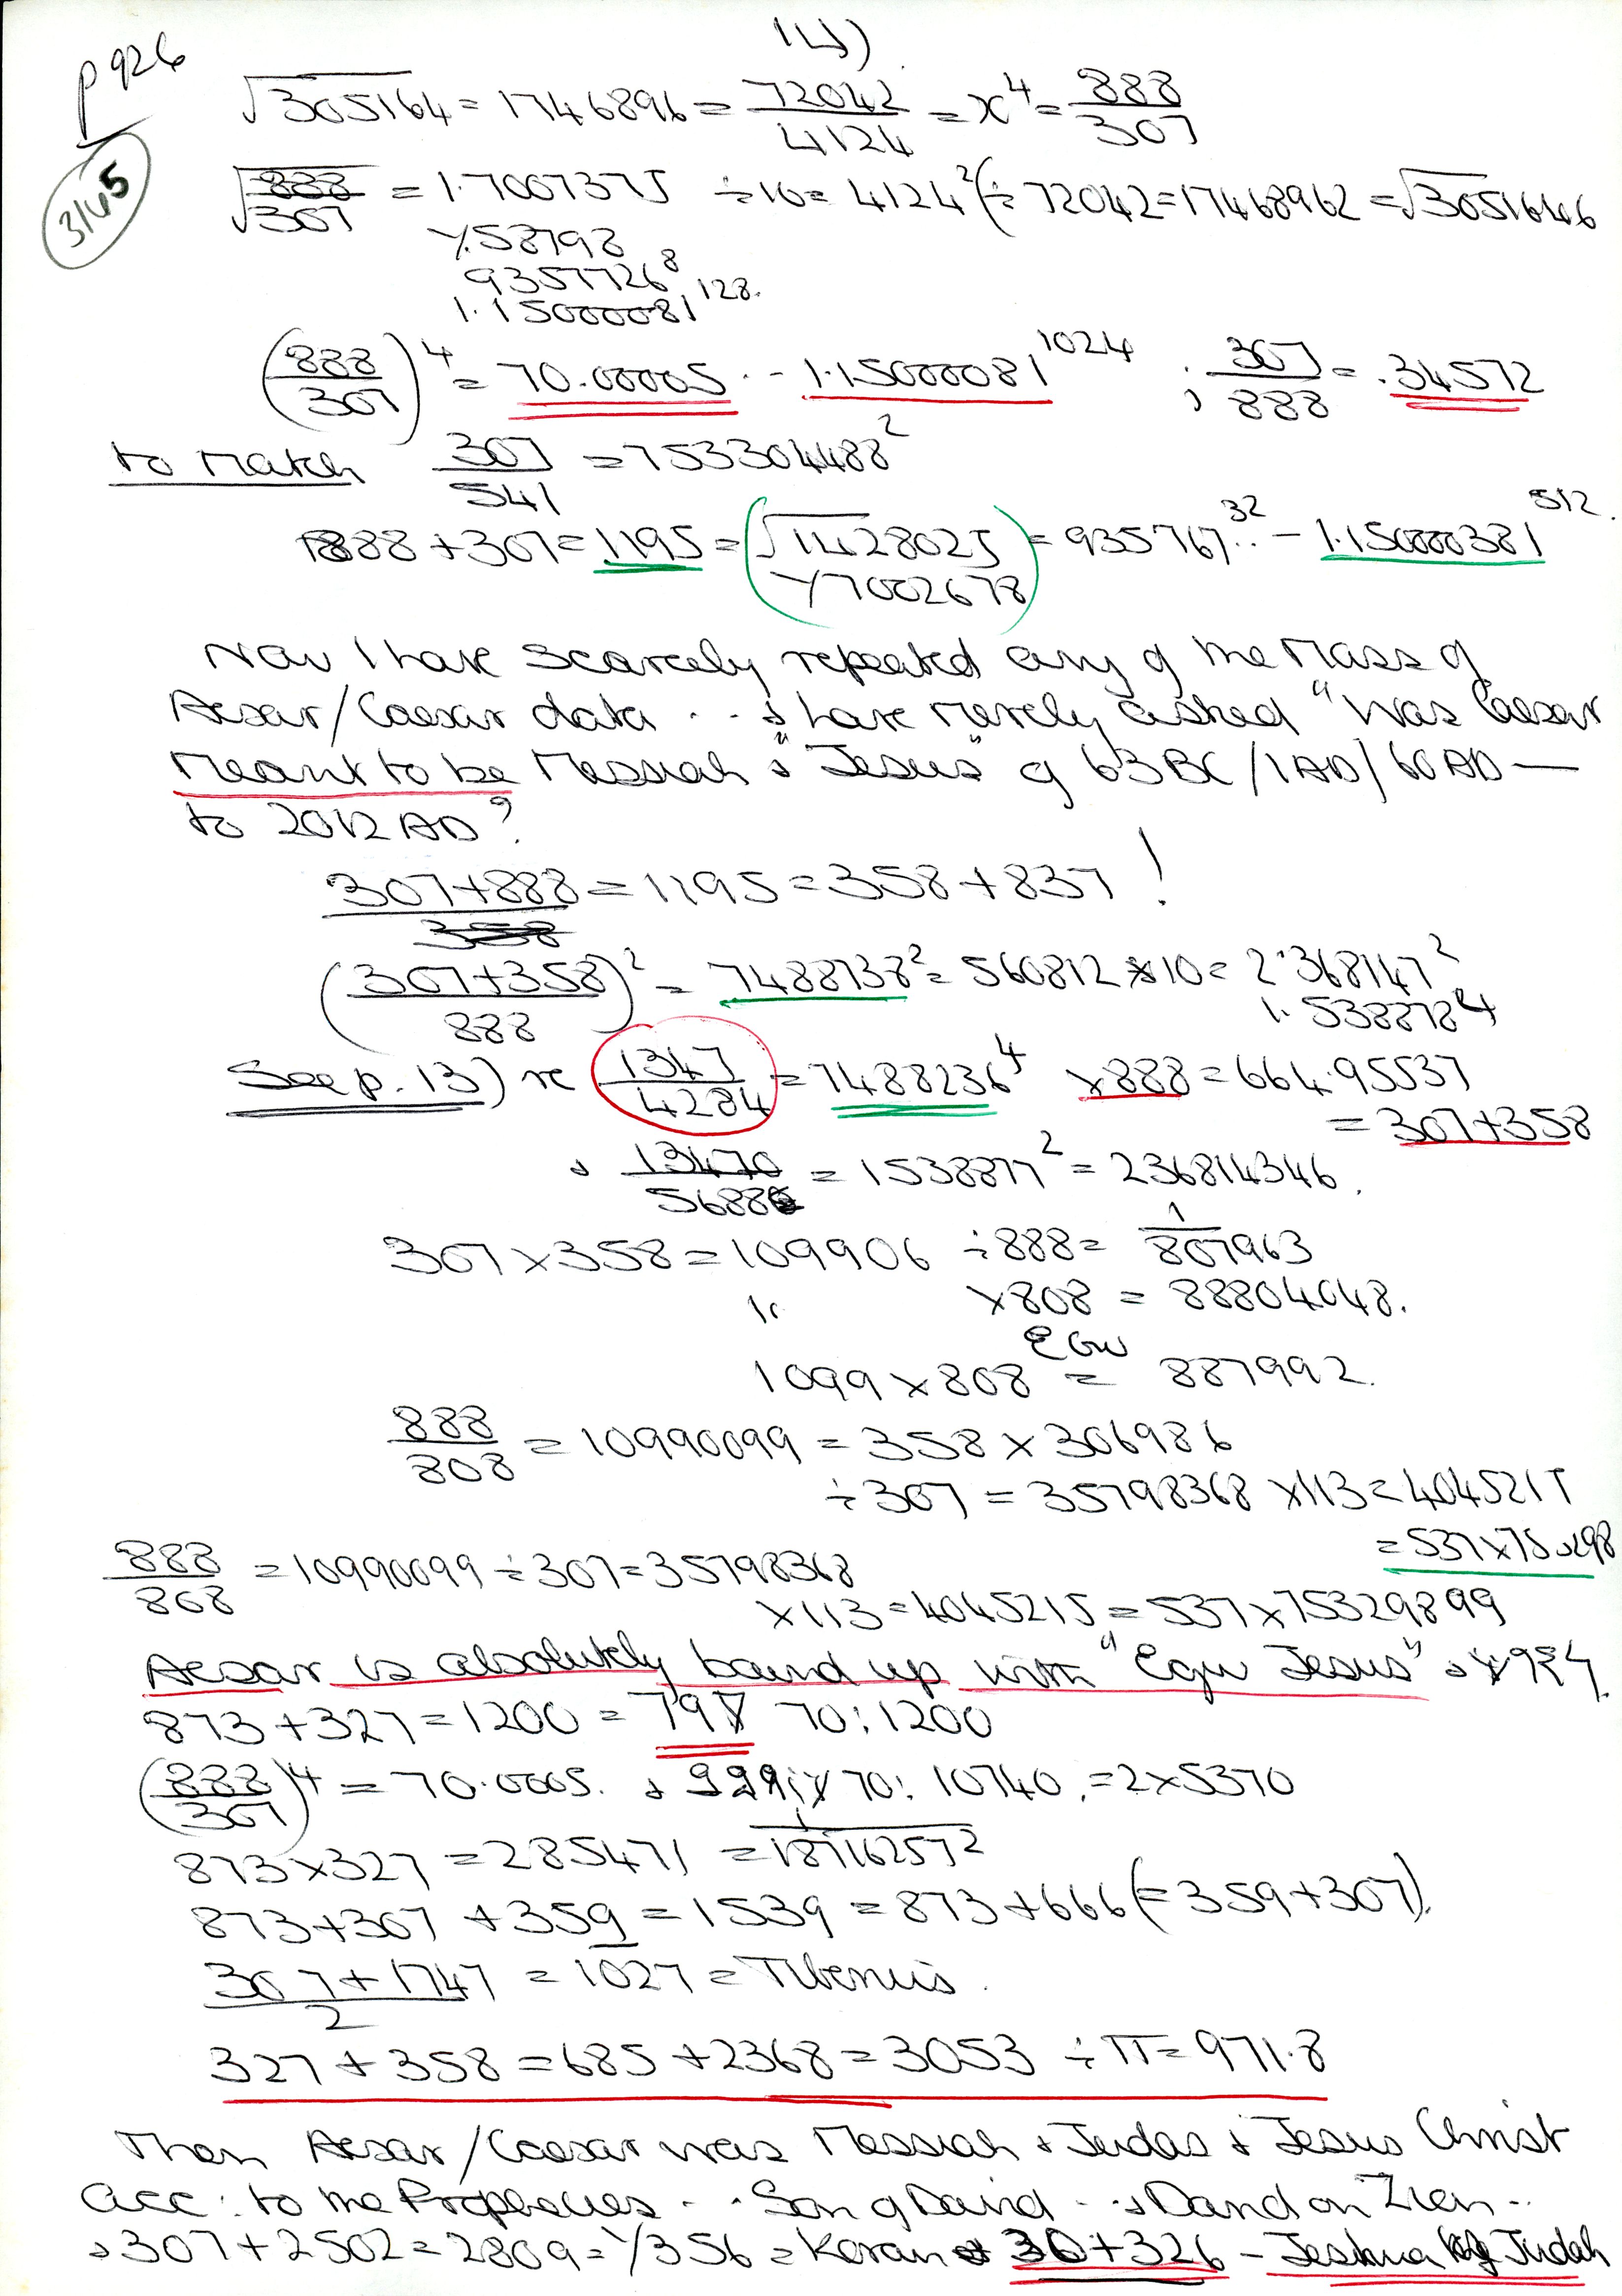 p 926
3165
√305164 = 1746896 = 72042/4124 = x⁴ = 888/307
√888/307 = 1.7007375 ÷10 = 4124²(÷ 72042 = 17468962 = √30516466
Y.58798
9357726⁸
1.15000081¹²⁸.
(888/307)⁴ = 70.00005 .- 1.15000081¹⁰²⁴ ; 307/888 = .34572
to match 307/541 = 753304488²
888 + 307 = 1195 = (√1428025 = 935767³².. - 1.150000381⁵¹².
Y7002678)
Now I have scarcely repeated any of the Mass of
Aesar/Caesar data ... & have merely asked "Was Caesar
meant to be Messiah & "Jesus" of 63BC/1AD/60AD —
to 2012 AD?
307+888 = 1195 = 358 + 837 !
(307+358/888)² = 7488738² = 560812 x 10 = 2.368147²
1.5388784
See p. 13) re 1347/4284 = 7488236⁴ x888 = 664.95537
= 307+358
& 13470/5688 = 1538877² = 236814346.
307 x 358 = 109906 ÷888 = 1/807963
x808 = 88804048.
Egw
1099 x 808 = 887992.
888/808 = 10990099 = 358 x 306986
÷307 = 35798368 x113 = 4045215
= 537 x 753298
888/808 = 10990099 ÷ 307 = 35798368
x113 = 4045215 = 537 x 75329899
Aesar is absolutely bound up with "Egw Jesus" &
873 + 327 = 1200 = 797 70:1200
(888/307)⁴ = 70.0005. & 70: 10740. = 2 x 5370
873 x 327 = 285471 = 1/187162572
873 + 307 + 359 = 1539 = 873 + 666 (= 359 + 307).
307 + 1747/2 = 1027 = Tiberius.
327 + 358 = 685 + 2368 = 3053 ÷ π = 971.8
Then Aesar/Caesar was Messiah & Judas & Jesus Christ
acc: to the Prophecies .. Son of David .. & David on Zion ..
& 307 + 2502 = 2809 = Y356 = Koran & 30 + 326 - Jeshua King of Judah